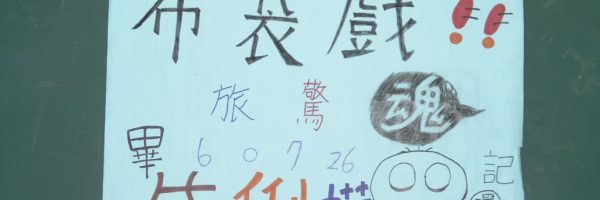 布袋戲!!
畢旅驚魂記
6 0 7 26